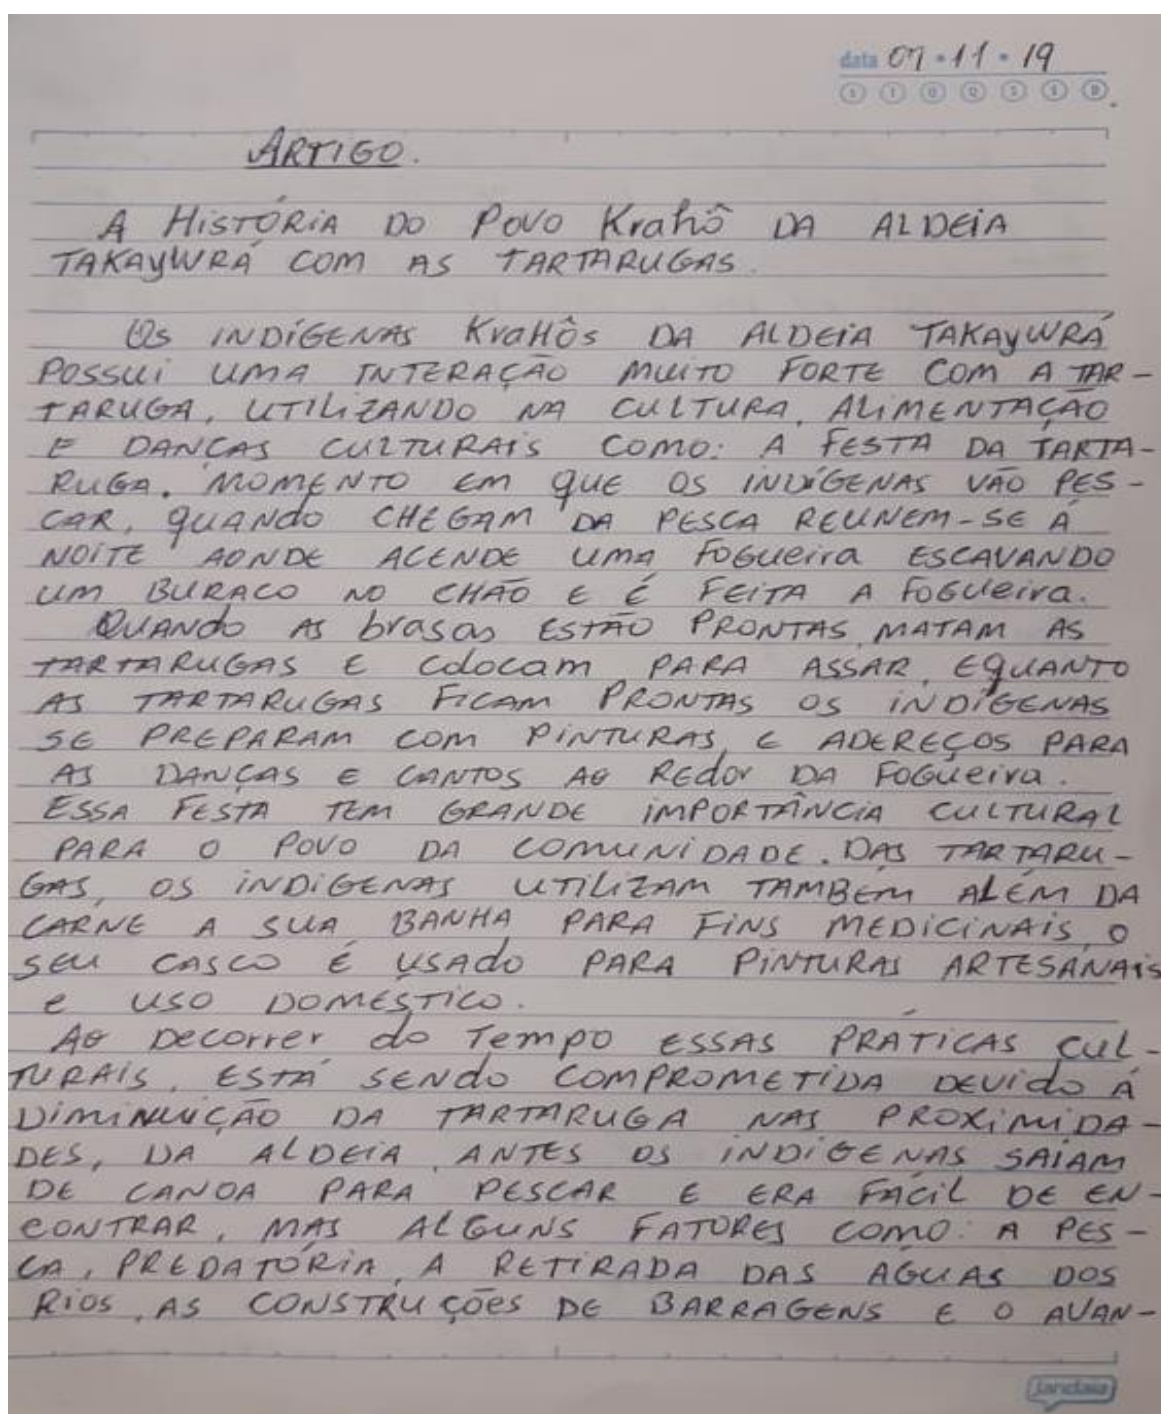 data 07 • 11 • 19
S T Q Q S S D
ARTIGO.
A HISTÓRIA DO POVO Krahô DA ALDEIA
TAKAYWRÁ COM AS TARTARUGAS.
Os INDÍGENAS KraHôs DA ALDEIA TAKAYWRÁ
POSSUI UMA INTERAÇÃO MUITO FORTE COM A TAR-
TARUGA, UTILIZANDO NA CULTURA, ALIMENTAÇÃO
E DANÇAS CULTURAIS COMO: A FESTA DA TARTA-
RUGA. MOMENTO EM QUE OS INDÍGENAS VÃO PES-
CAR, QUANDO CHEGAM DA PESCA REUNEM-SE Á
NOITE AONDE ACENDE UMA FOGUEIRA ESCAVANDO
UM BURACO NO CHÃO E É FEITA A FOGUEIRA.
QUANDO AS brasas ESTÃO PRONTAS, MATAM AS
TARTARUGAS E COLOCAM PARA ASSAR, EQUANTO
AS TARTARUGAS FICAM PRONTAS OS INDÍGENAS
SE PREPARAM COM PINTURAS, E ADEREÇOS PARA
AS DANÇAS E CANTOS AO REDOR DA FOGUEIRA.
ESSA FESTA TEM GRANDE IMPORTÂNCIA CULTURAL
PARA O POVO DA COMUNIDADE. DAS TARTARU-
GAS, OS INDIGENAS UTILIZAM TAMBÉM ALÉM DA
CARNE A SUA BANHA PARA FINS MEDICINAIS, O
SEU CASCO É USADO PARA PINTURAS ARTESANAIS
e USO DOMÉSTICO.
AO Decorrer do Tempo ESSAS PRÁTICAS CUL-
TURAIS, ESTÁ SENDO COMPROMETIDA DEVIDO Á
DIMINUIÇÃO DA TARTARUGA NAS PROXIMIDA-
DES, DA ALDEIA, ANTES OS INDIGENAS SAIAM
DE CANOA PARA PESCAR E ERA FÁCIL DE EN-
CONTRAR, MAS ALGUNS FATORES COMO: A PES-
CA, PREDATÓRIA, A RETIRADA DAS ÁGUAS DOS
RIOS, AS CONSTRUÇÕES DE BARRAGENS E O AVAN-
Jandaia